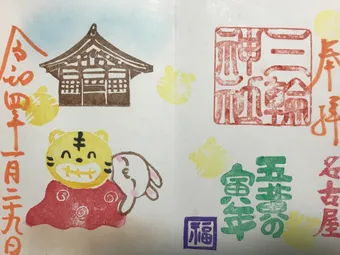 奉拝
名古屋
三輪
神社
五黄の
寅年
福
令和四年一月二九日